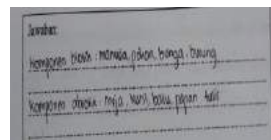 Jawaban:
Komponen biotik : manusia, pohon, bunga, burung
Komponen abiotik : meja, kursi, buku, papan tulis